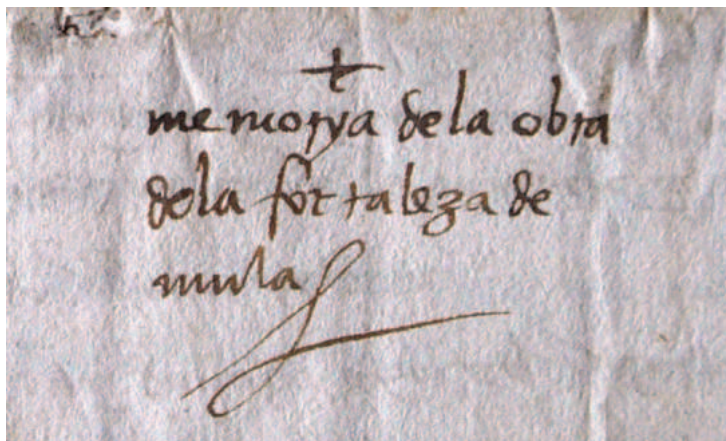 memorya dela obra
dela fortaleza de
mula